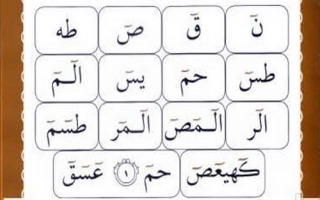 نٓ قٓ صٓ طه
طسٓ حمٓ يسٓ الٓمٓ
الٓر الٓمٓصٓ الٓمٓر طسٓمٓ
كٓهيعٓصٓ حمٓ ۝١ عٓسٓقٓ